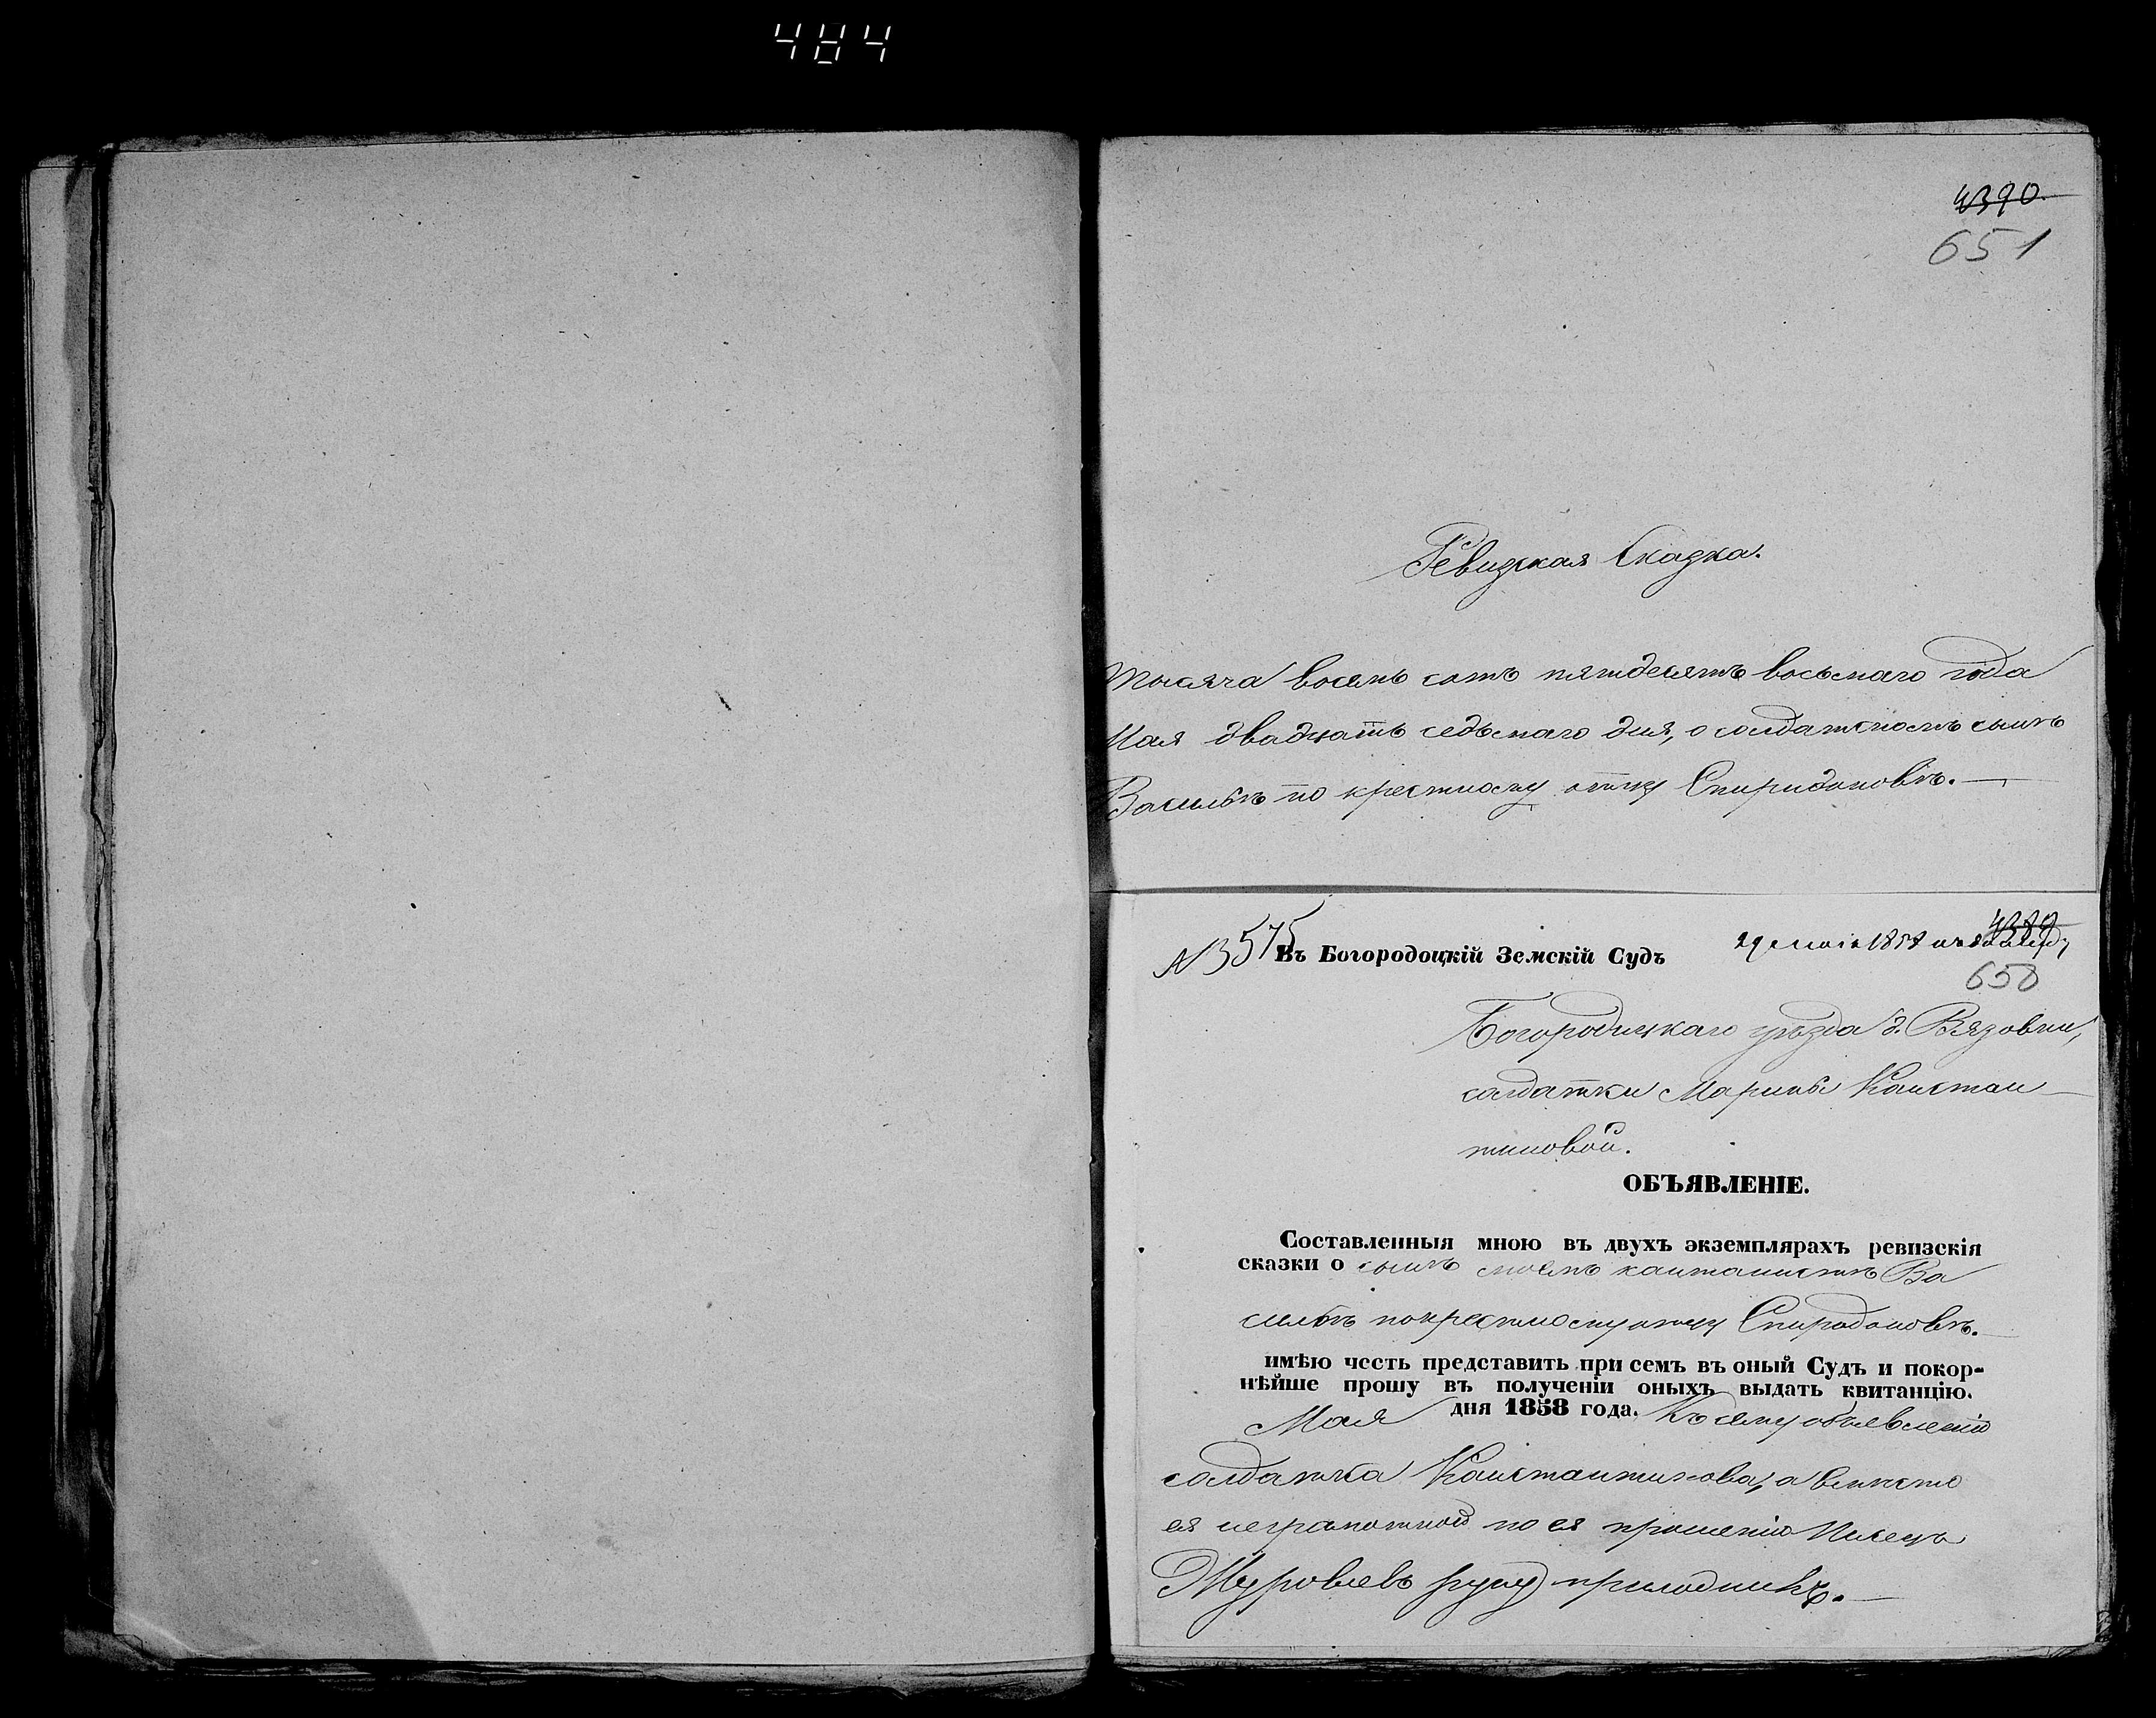 484
4390.
651
Ревизская Сказка.
Тысяча восемь сотъ пятдесятъ восьмаго года
Мая двадцать седьмаго дня, о солдатскомъ сынѣ
Васильѣ по крестному отцу Спиридоновѣ.
№ 3575
Въ Богородоцкій Земскій Судъ
29 мая 1858
4389
650
Богородицкаго уѣзда д. Вязовки,
солдатки Марины Констан
тиновой.
ОБЪЯВЛЕНІЕ.
Составленныя мною въ двухъ экземплярахъ ревизскія
сказки о сынѣ моемъ кантонистѣ Ва
сильѣ по крестному отцу Спиридоновѣ.
имѣю честь представить при семъ въ оный Судъ и покор-
нѣйше прошу въ полученіи оныхъ выдать квитанцію.
Мая дня 1858 года. Къ сему объявленію
солдатка Константинова, а вмѣсто
ея неграмотной по ея прошенію Писецъ
руку приложилъ.